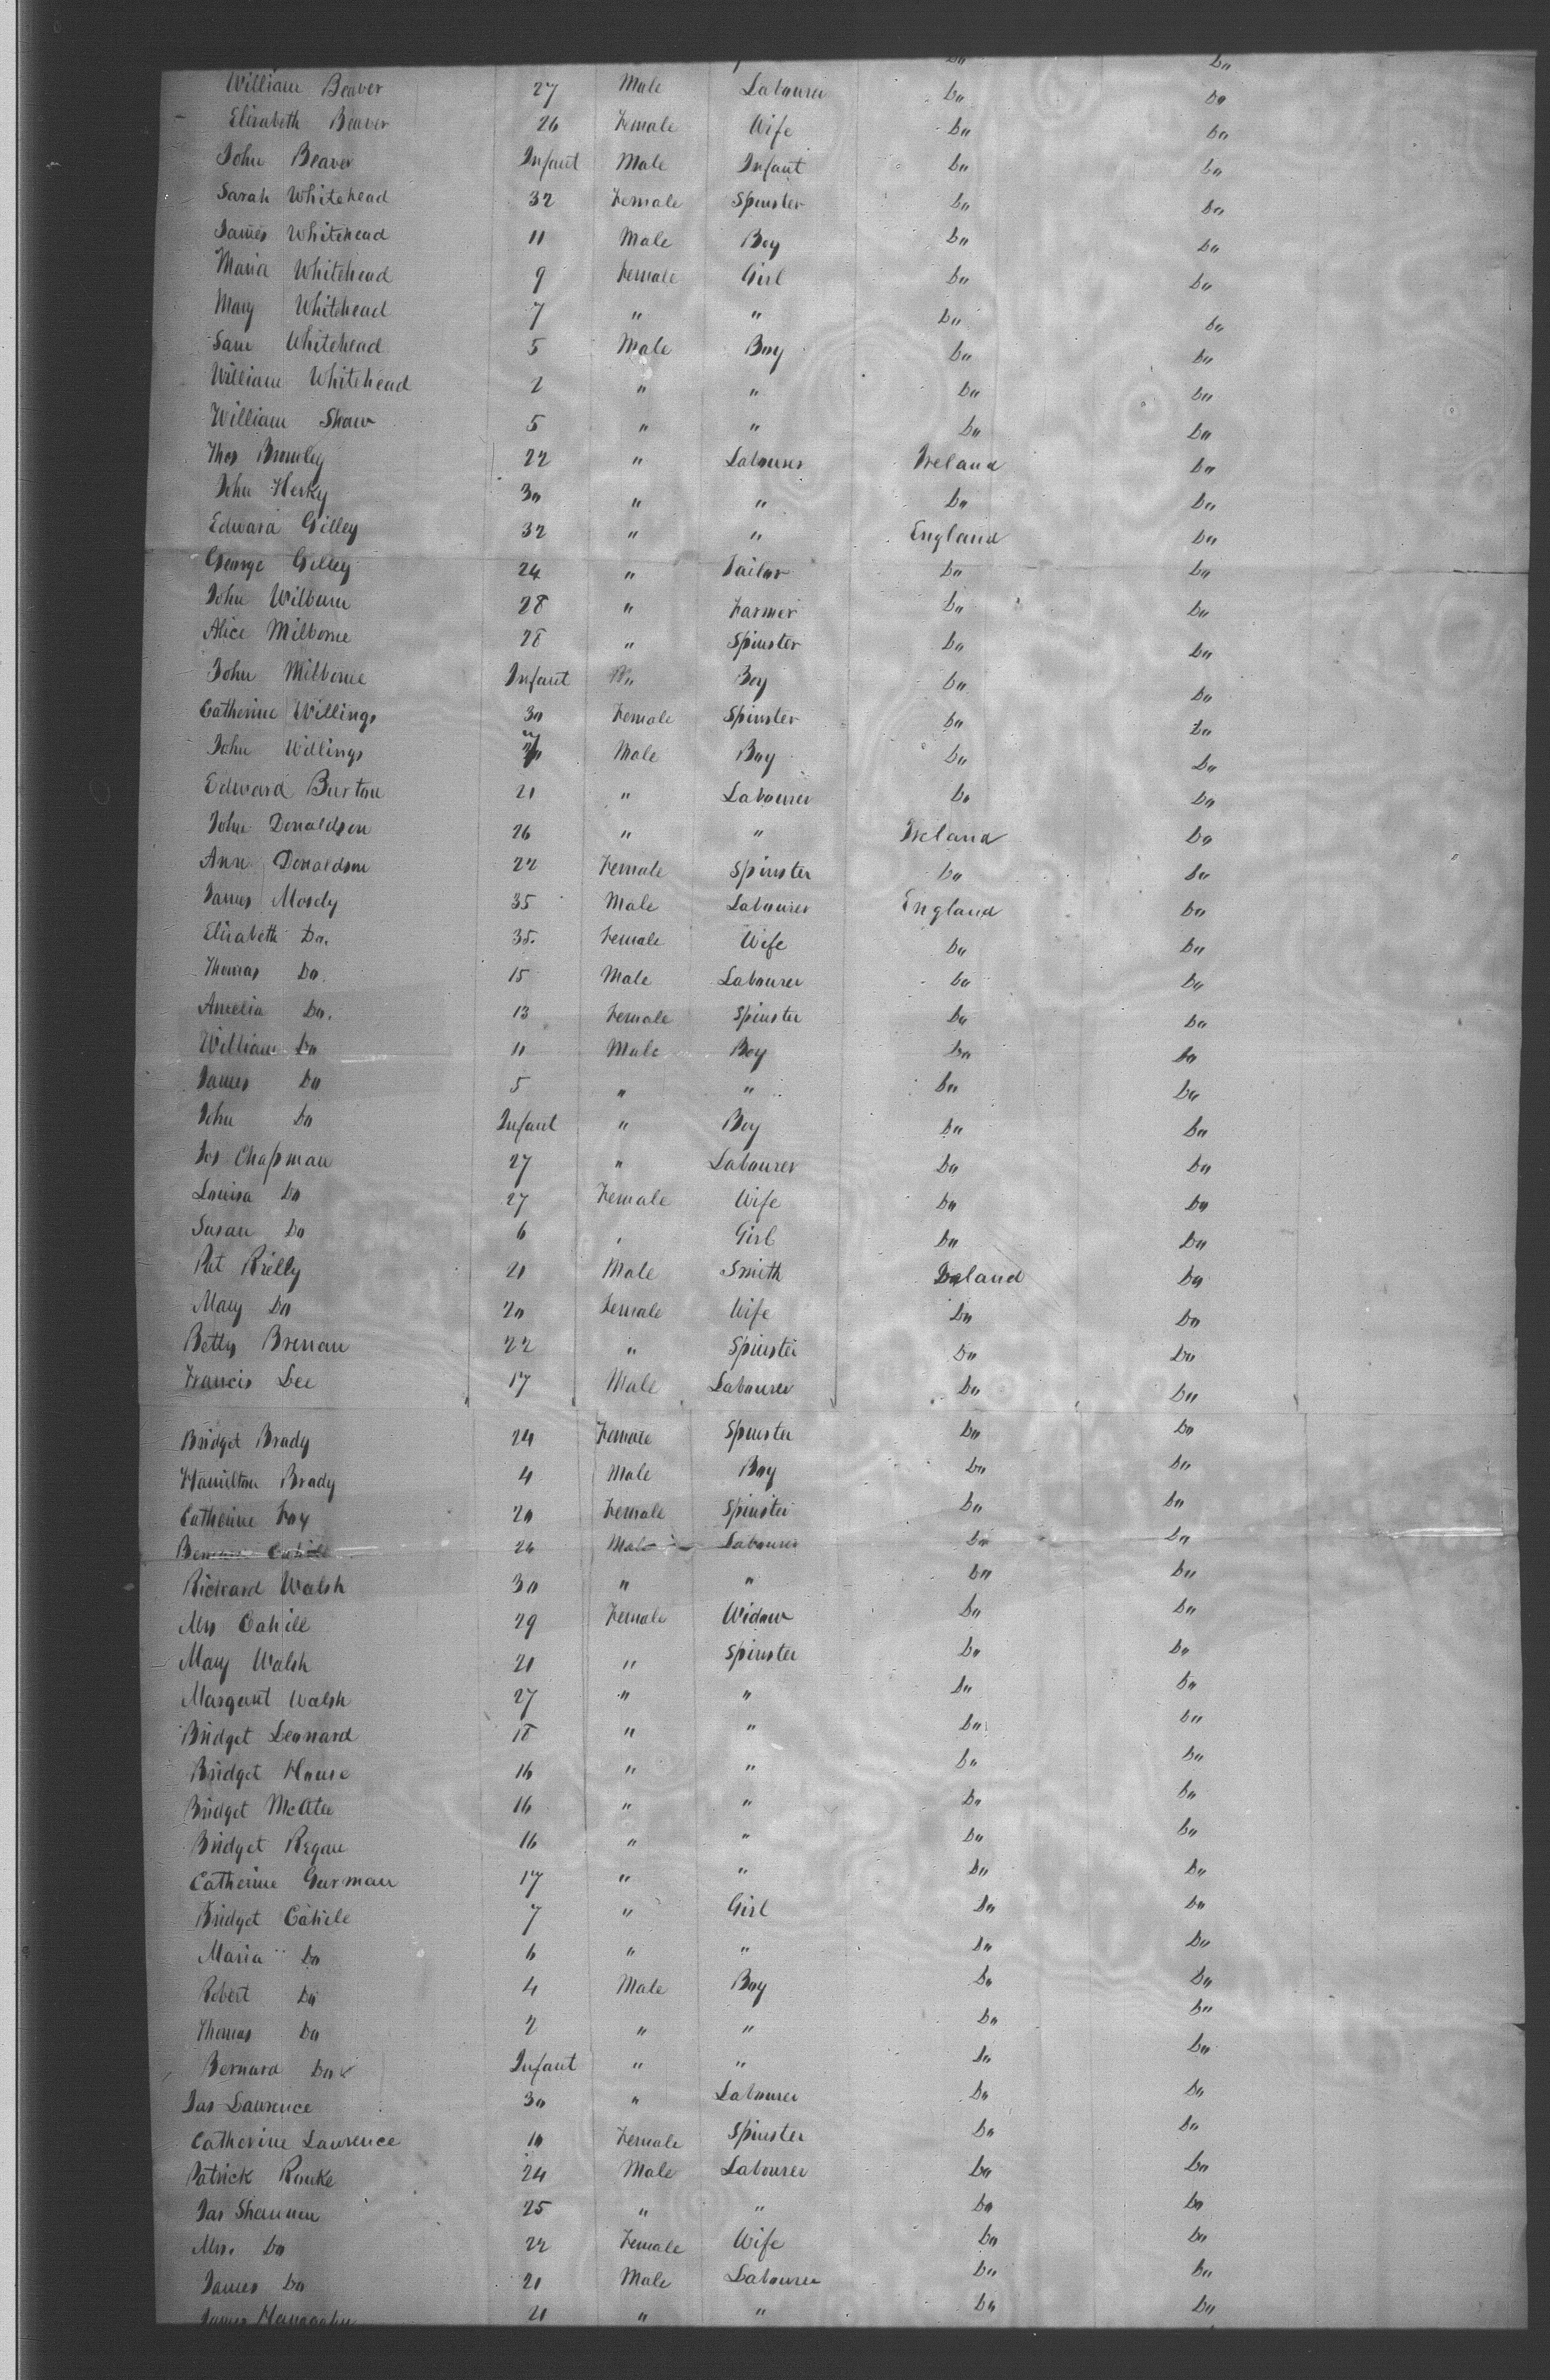 Do Do
William Beaver 27 Male Labourer Do Do
Elizabeth Beaver 26 Female Wife Do Do
John Beaver Infant Male Infant Do Do
Sarah Whitehead 32 Female Spinster Do Do
James Whitehead 11 Male Boy Do Do
Maria Whitehead 9 Female Girl Do Do
Mary Whitehead 7 " " Do Do
Sam Whitehead 5 Male Boy Do Do
William Whitehead 2 " " Do Do
William Shaw 5 " " Do Do
Thos Bromley 22 " Labourer Ireland Do
John Herky 30 " " Do Do
Edward Gilley 32 " " England Do
George Gilley 24 " Tailor Do Do
John Wilburn 28 " Farmer Do Do
Alice Milborne 28 " Spinster Do Do
John Milborne Infant Boy Do Do
Catherine Willings 30 Female Spinster Do Do
John Willings Male Boy Do Do
Edward Burton 21 " Labourer Do Do
John Donaldson 26 " " Ireland Do
Ann Donaldson 22 Female Spinster Do Do
James Mosdy 35 Male Labourer England Do
Elizabeth Do. 35. Female Wife Do Do
Thomas Do. 15 Male Labourer Do Do
Amelia Do. 13 Female Spinster Do Do
William Do 11 Male Boy Do Do
James Do 5 " " Do Do
John Do Infant " Boy Do Do
Jos Chapman 27 " Labourer Do Do
Louisa Do 27 Female Wife Do Do
Susan Do 6 " Girl Do Do
Pat Rielly 21 Male Smith Ireland Do
Mary Do 20 Female Wife Do Do
Betty Brenan 22 " Spinster Do Do
Francis Lee 17 Male Labourer Do Do
Bridget Brady 24 Female Spinster Do Do
Hamilton Brady 4 Male Boy Do Do
Catherine Foy 20 Female Spinster Do Do
Bernard Cahill 26 Male Labourer Do Do
Richard Walsh 30 " " Do Do
Mrs Cahill 29 Female Widow Do Do
Mary Walsh 21 " Spinster Do Do
Margaret Walsh 27 " " Do Do
Bridget Leonard 18 " " Do Do
Bridget House 16 " " Do Do
Bridget McAtee 16 " " Do Do
Bridget Regan 16 " " Do Do
Catherine Gurman 17 " " Do Do
Bridget Cahile 7 " Girl Do Do
Maria Do 6 " " Do Do
Robert Do 4 Male Boy Do Do
Thomas Do 2 " " Do Do
Bernard Do Infant " " Do Do
Jas Lawrence 30 " Labourer Do Do
Catherine Lawrence 10 Female Spinster Do Do
Patrick Rourke 24 Male Labourer Do Do
Jas Shannon 25 " " Do Do
Mrs. Do 22 Female Wife Do Do
James Do 21 Male Labourer Do Do
James 21 " " Do Do